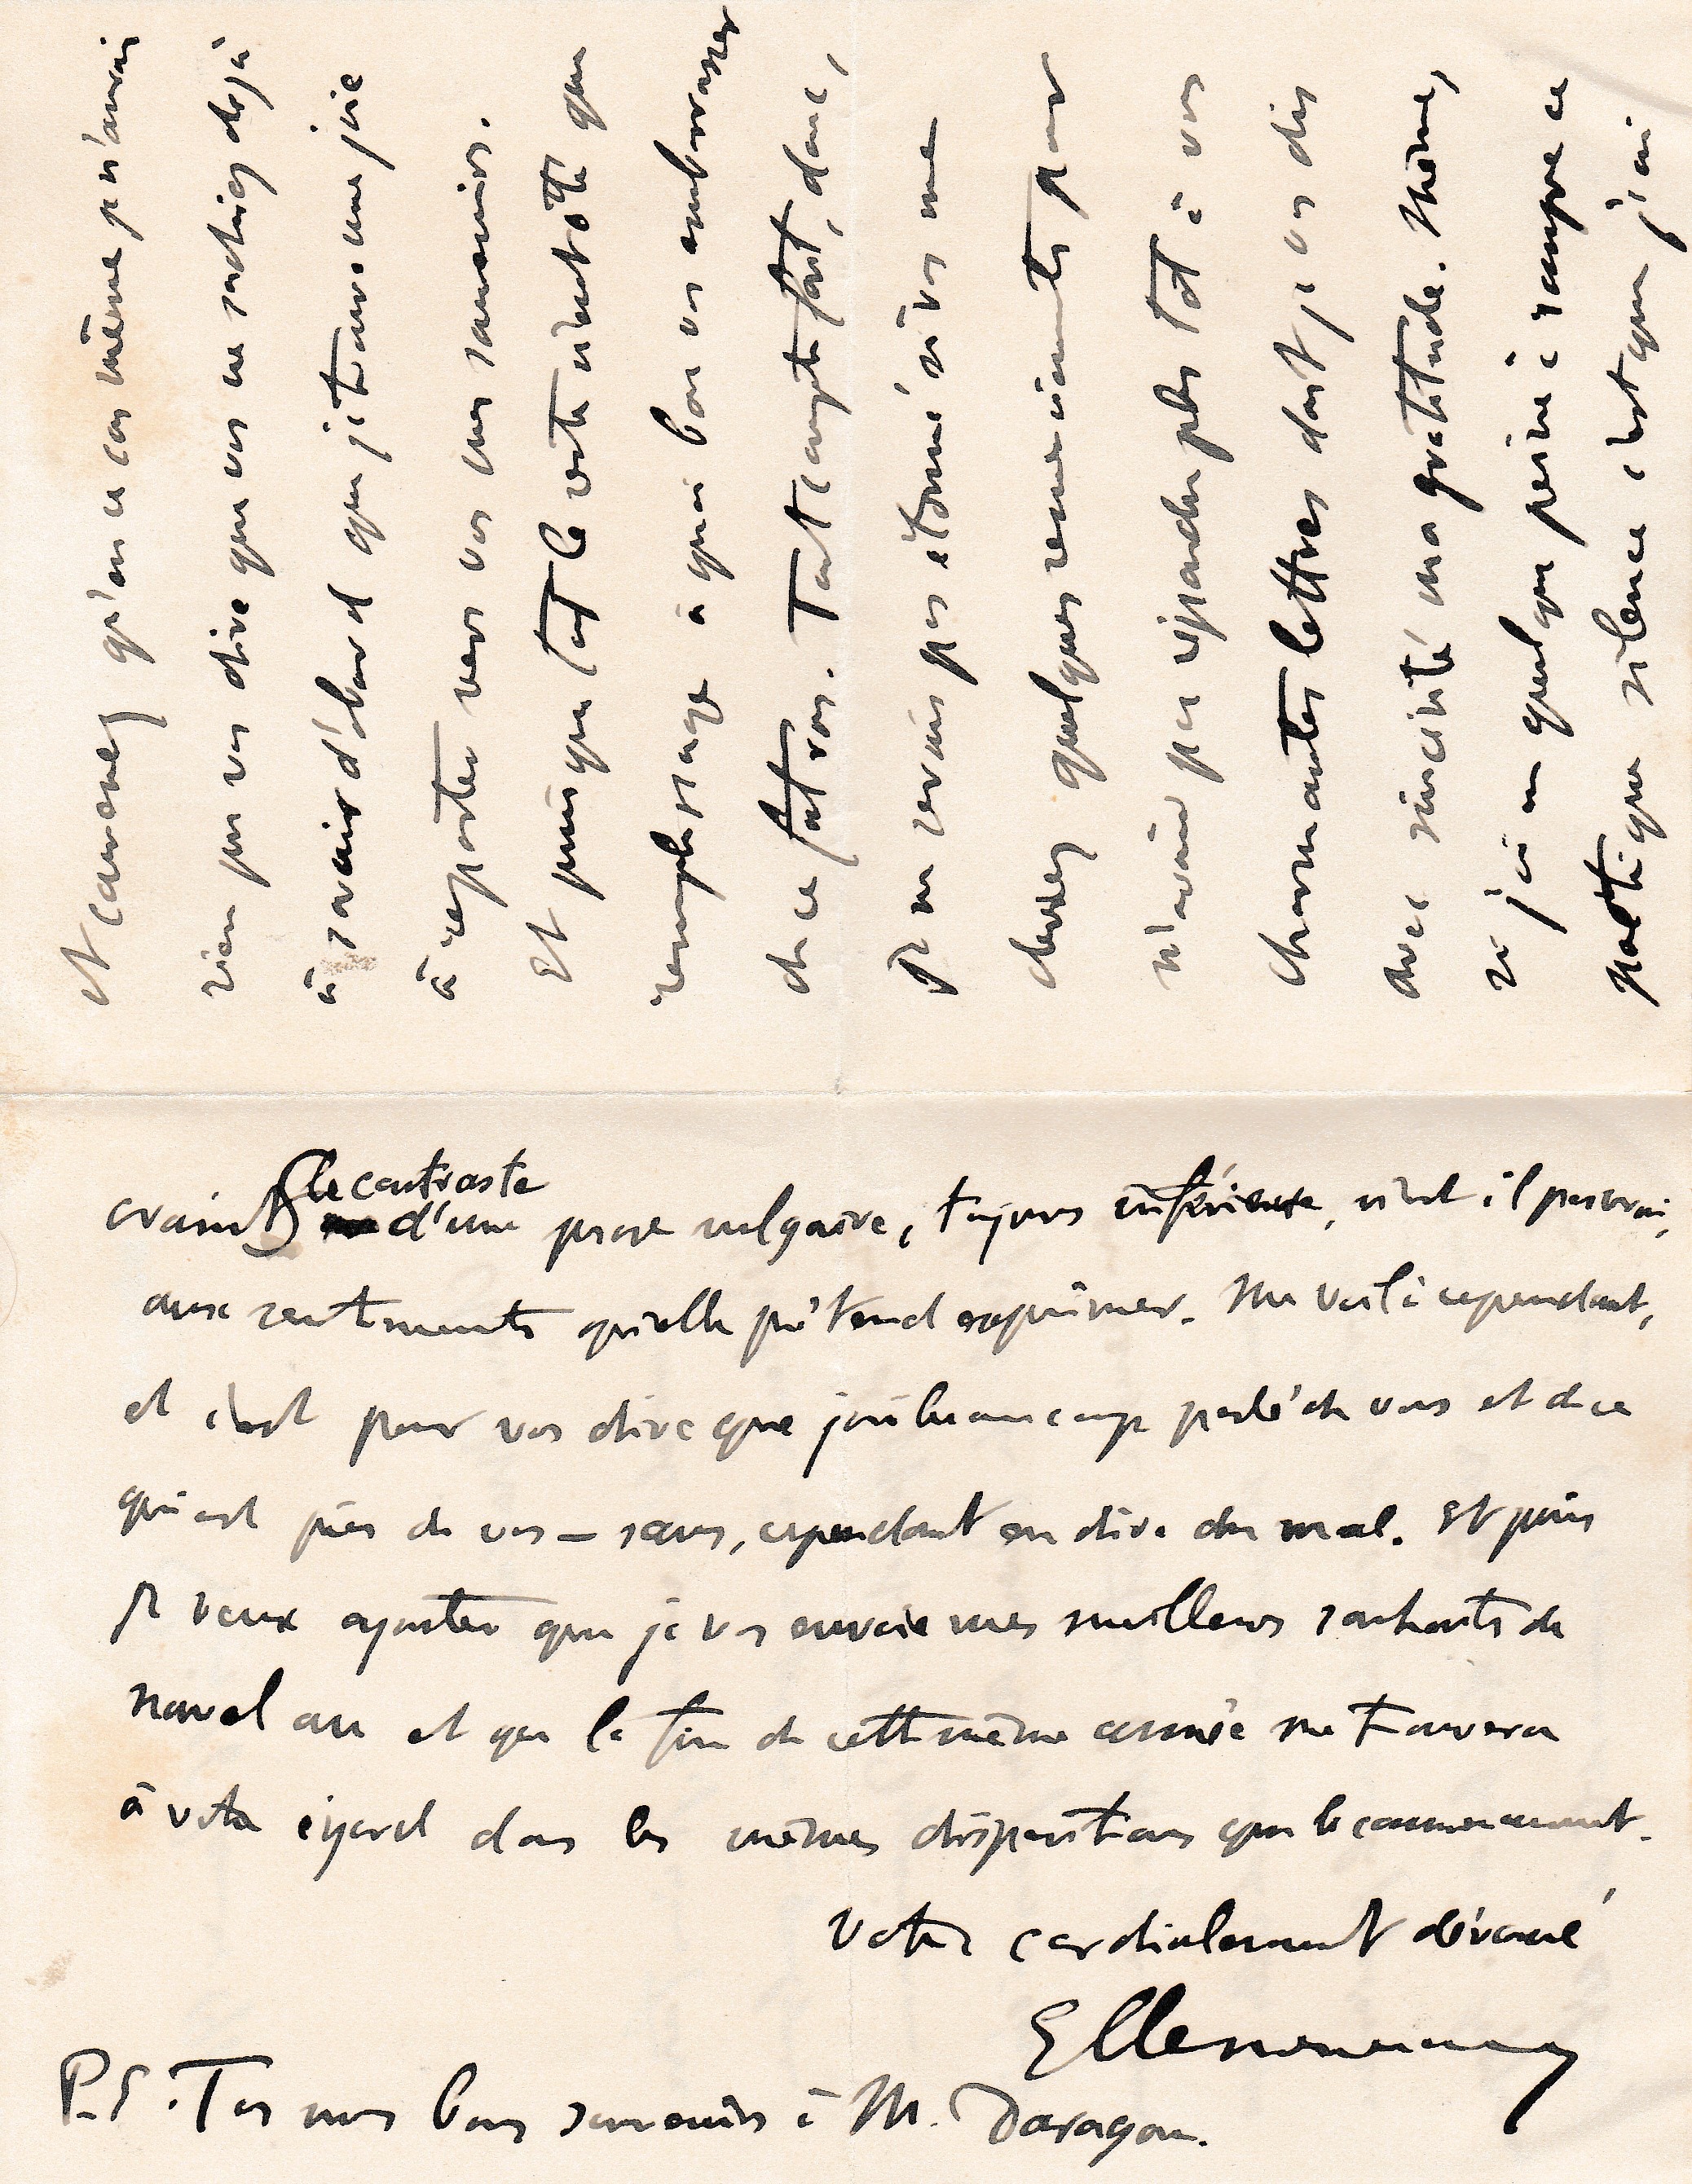 et convenez qu'en ce cas même je n'aurais
rien pu vous dire que vous ne sachiez déjà
à savoir d'abord que je trouve une joie
à reporter vers vous mes souvenirs.
Et puisque tout le reste n'est ôté que
remplissage à quoi bon vous embarrasser
de ce fatras. Tout compte fait, donc,
Je ne serais pas étonné si vous me
deviez quelques remerciements pour
n'avoir pas répondu plus tôt à vos
charmantes lettres dont je vs dis
avec sincérité ma gratitude. Même,
si j'ai quelque peine à rompre ce
poétique silence c'est que j'ai
craint le contraste
d'une prose vulgaire, toujours inférieure, n'est il pas vrai,
aux sentiments qu'elle prétend exprimer. Me voilà cependant,
et c'est pour vos dire que j'ai beaucoup parlé de vous et de ce
qui est près de vos – sans, cependant en dire du mal. Et puis
Je veux ajouter que je vos envoie mes meilleurs souhaits de
nouvel an et que la fin de cette même année me trouvera
à votre égard dans les mêmes dispositions que le commencement.
Votre cordialement dévoué
P.S. Tos mes bons souvenirs à M. Daragon.